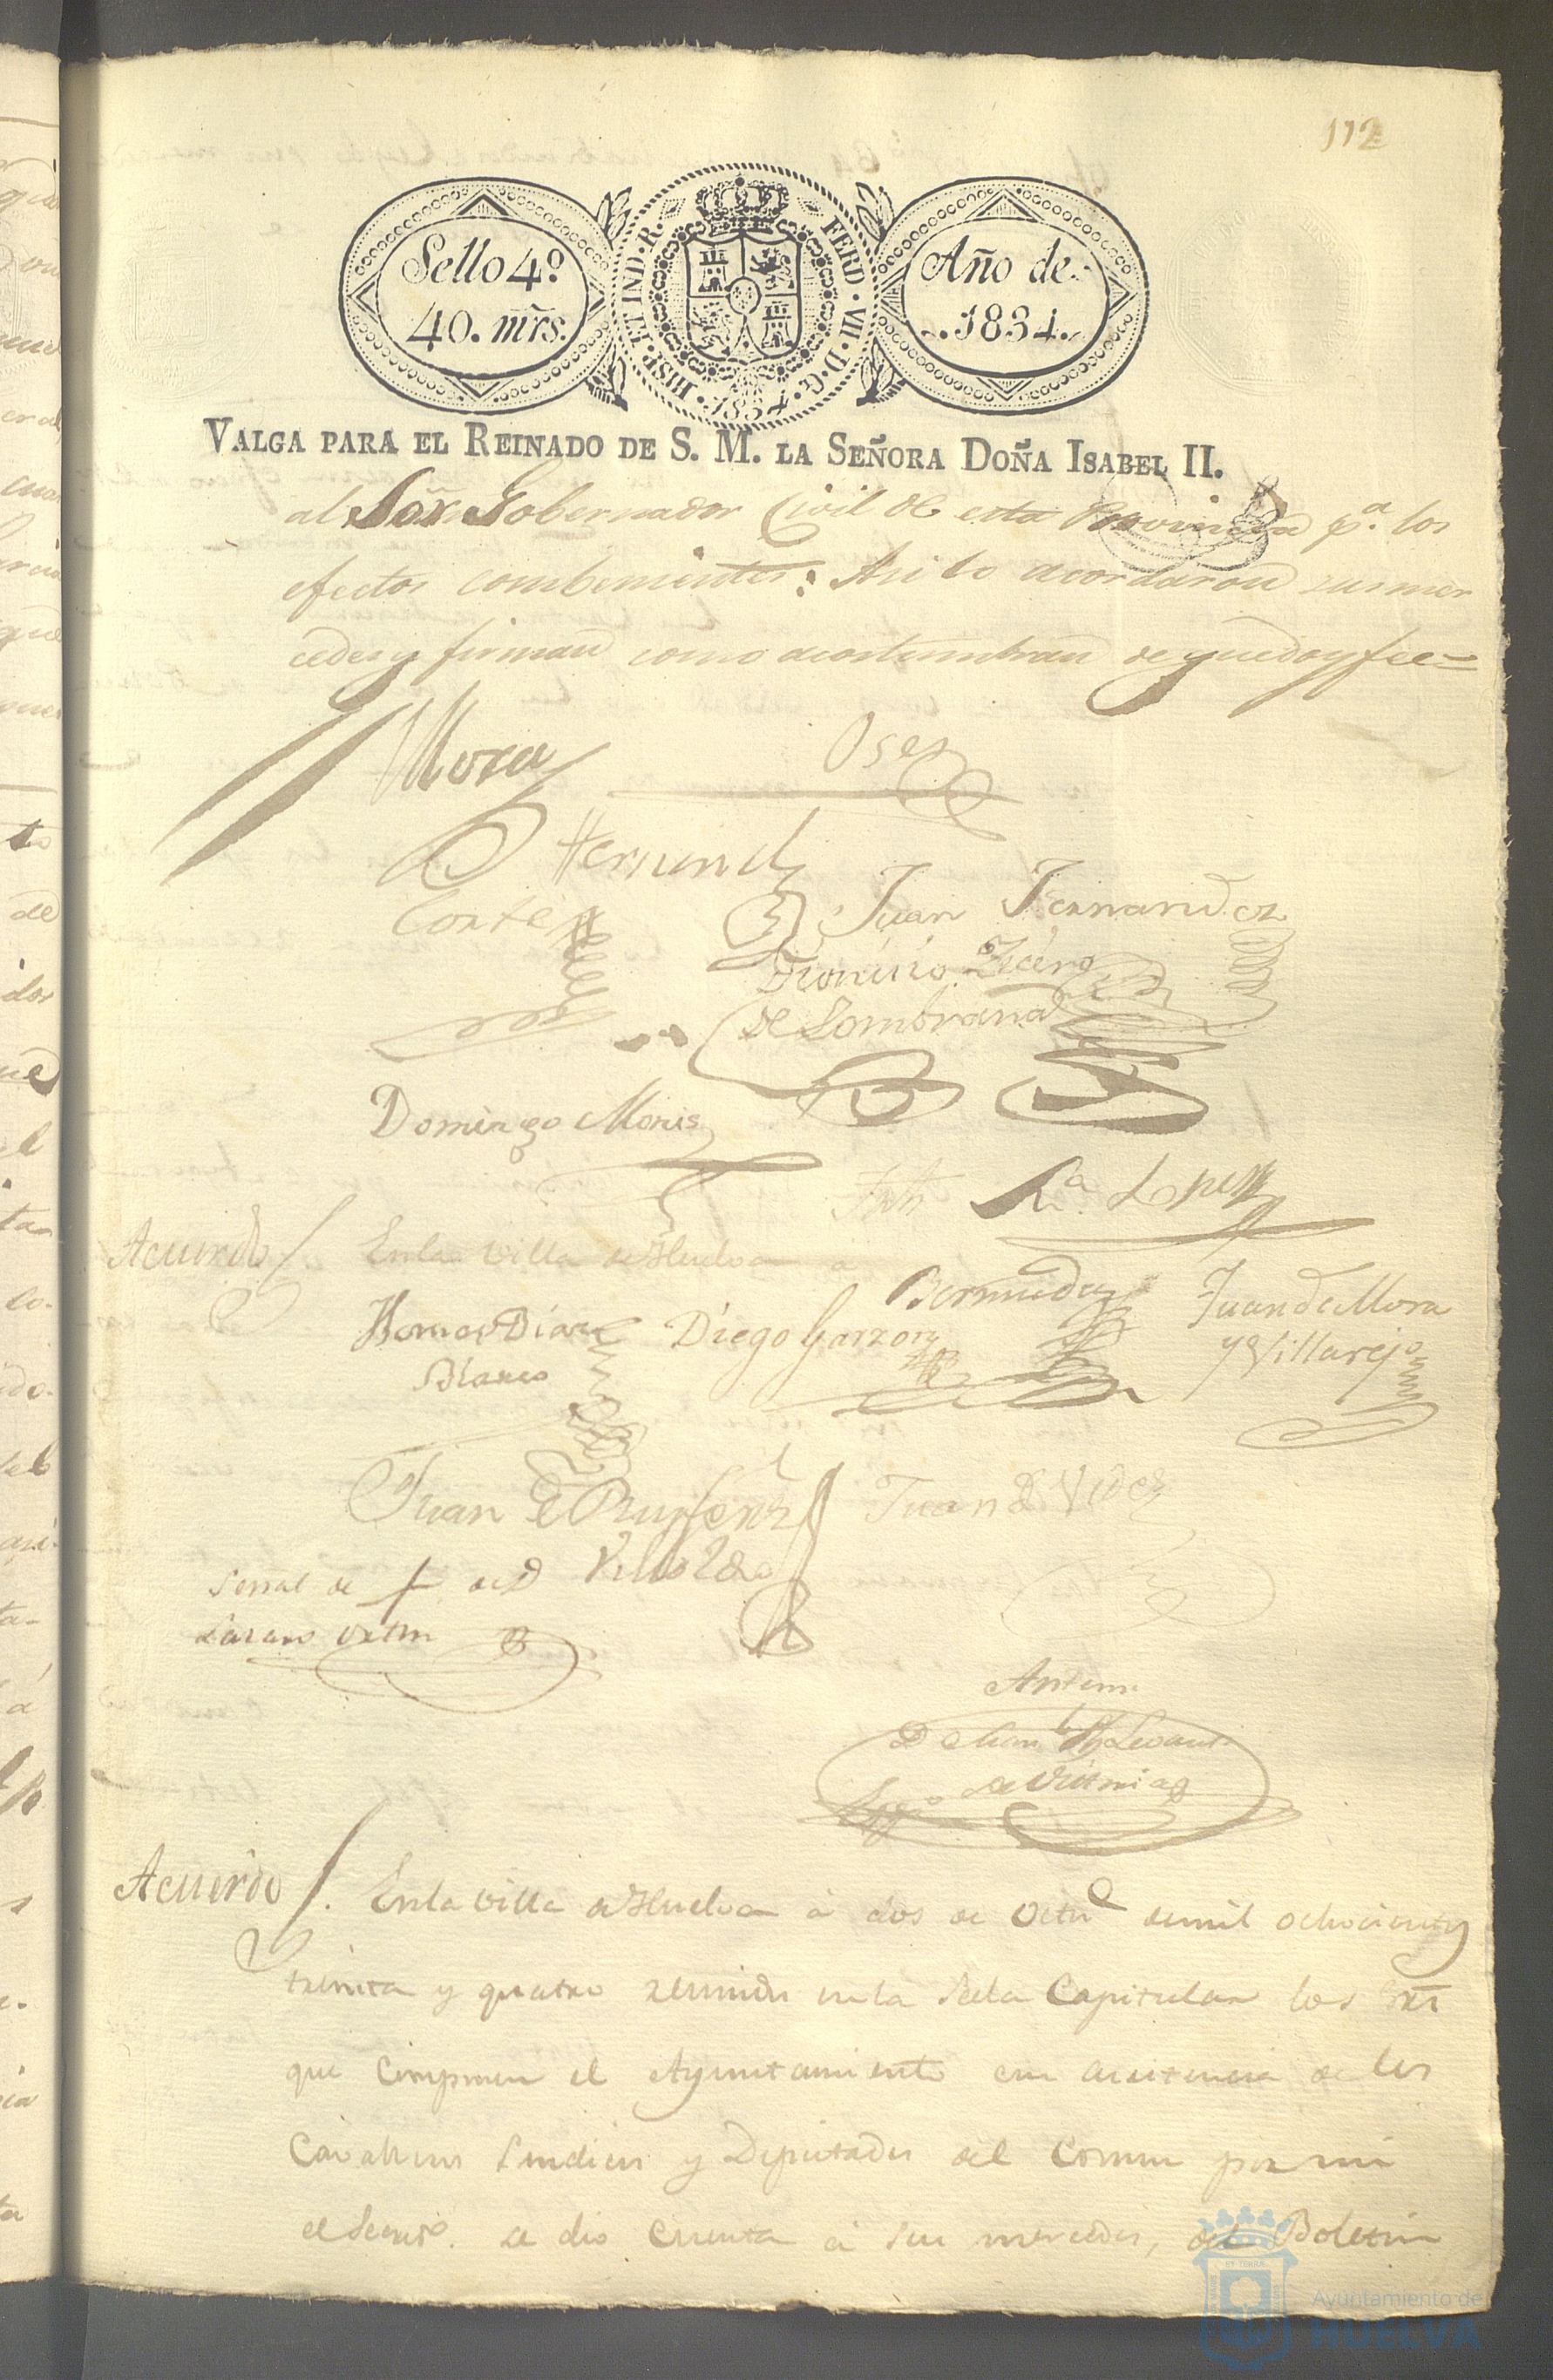 112
Sello 4º
40. mrs.
HISP. ET IND. R.
FERD. VII. D. G.
1834.
Año de
1834.
VALGA PARA EL REINADO DE S. M. LA SEÑORA DOÑA ISABEL II.
al Sor. Gobernador Civil de esta Provincia pª. los
efectos combenientes: Asi lo acordaron sus mer
cedes y firman como acostumbran de que doy fee =
Mora
Osez
Hernandz
Cortes
Juan Fernandez
Dionisio
de Zombrana
Domingo Monis
Lopez
Acuerdo
En la villa de Huelva a
Bermudez
Juan de Mora
y Villarejo
Diaz
Blanco
Diego Garzon
Juan
Juan de Vides
Señal de + de D
Lazaro
Antemi
D
Acuerdo
En la villa de Huelva à dos de Octue de mil ochocientos
treinta y quatro reunidos en la Sala Capitular los Sres
que componen el Ayuntamiento con asistencia de los
Cavalleros Sindicos y Diputados del Comun por mi
el Secreto. se dio cuenta à sus mercedes, del Boletin
Ayuntamiento de
HUELVA